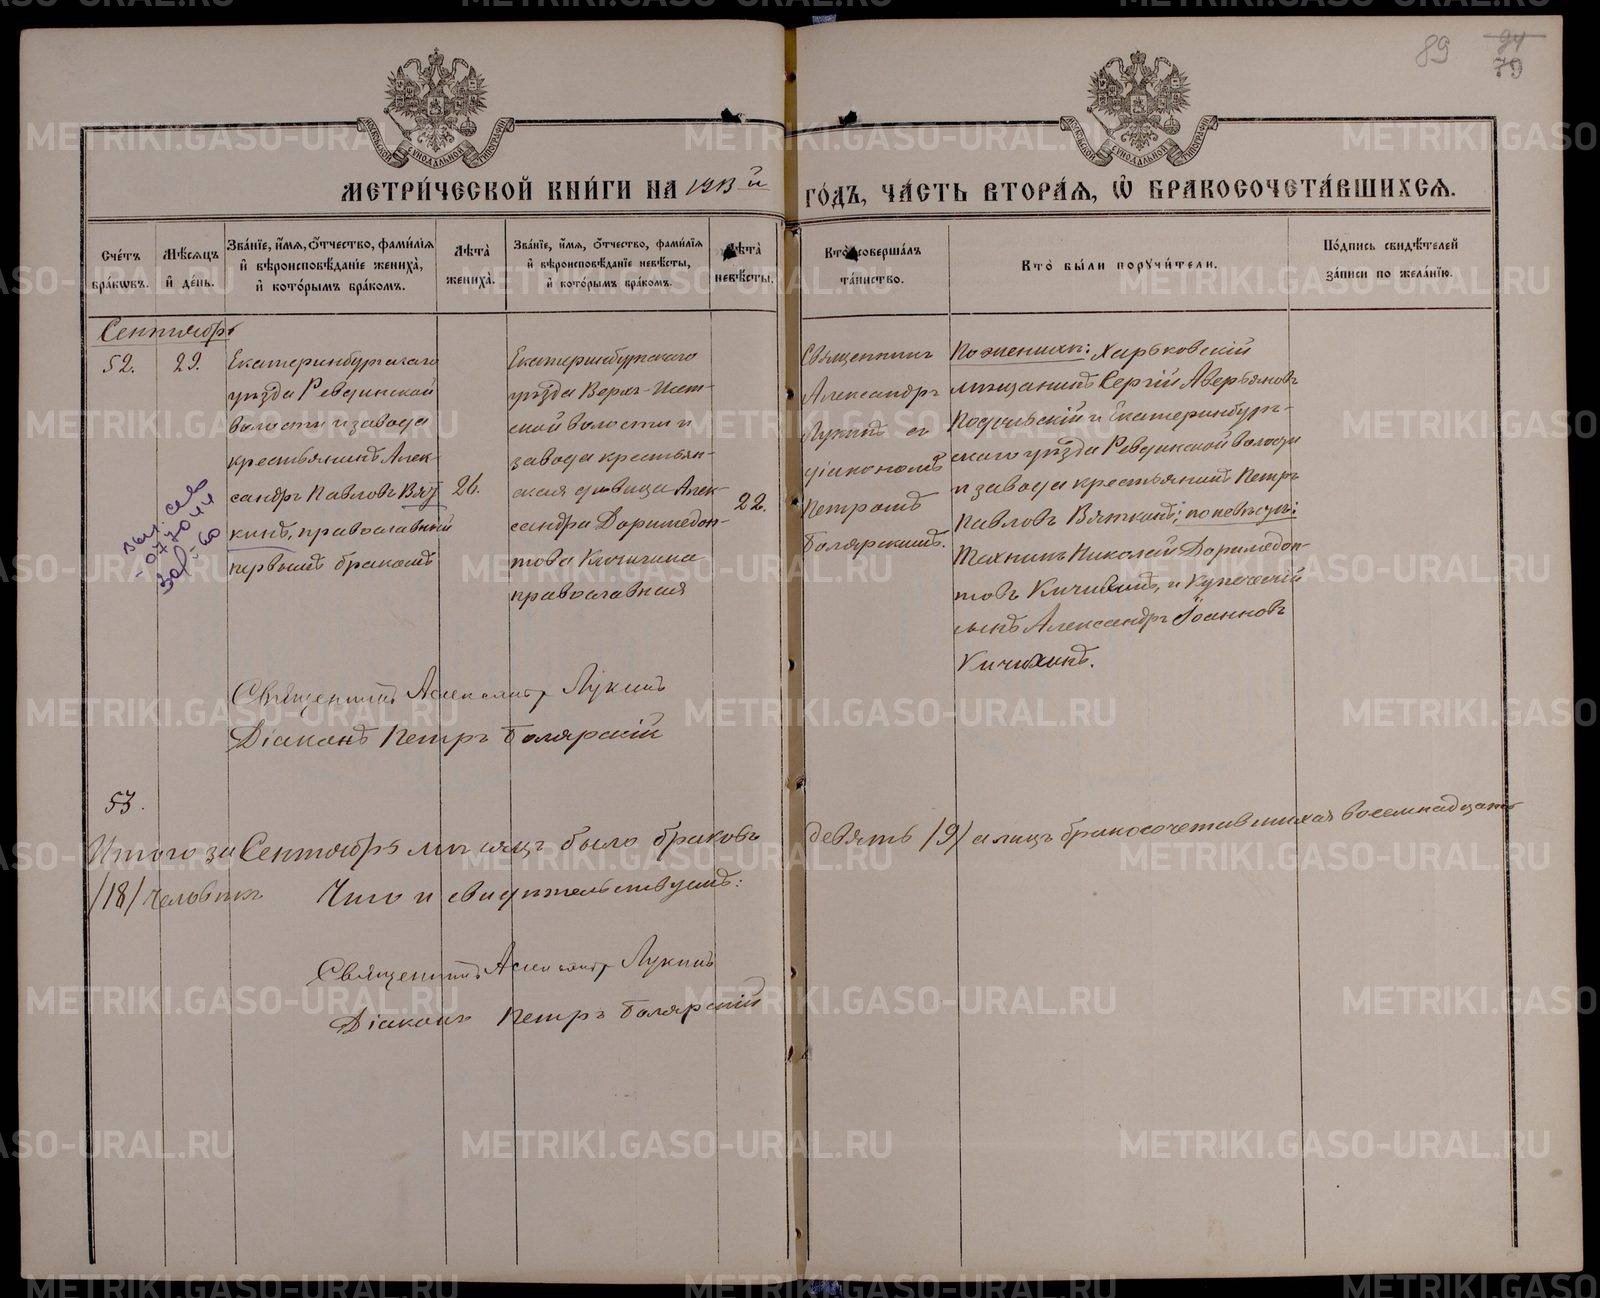 89
94
79
МЕТРИ́ЧЕСКОЙ КНИ́ГИ НА 1913 й ГО́ДЪ, ЧА́СТЬ ВТОРА́Я, Ѿ БРАКОСОЧЕТА́ВШИХСЯ.
Сче́тъ бра́кѡвъ.
Мѣ́сяцъ и де́нь.
Зва́нїе, и́мя, ѻ́тчество, фами́лїя и҆ вѣроисповѣ́данїе жениха̀, и҆ кото́рымъ бра́комъ.
Лѣта̀ жениха̀.
Зва́нїе, и́мя, ѻ́тчество, фами́лїя и҆ вѣроисповѣ́данїе невѣ́сты, и҆ кото́рымъ бра́комъ.
Лѣта̀ невѣ́сты.
Кто̀ соверша́лъ та́инство.
Кто̀ бы́ли поручи́тели.
По́дпись свидѣ́телей за́писи по жела́нїю.
Сентябрь
52.
29.
Екатеринбургскаго
уѣзда Ревдинской
волости и завода
крестьянинъ Алек-
сандръ Павловъ Вят
кинъ, православный
первымъ бракомъ
26.
Екатеринбургскаго
уѣзда Верхъ-Исет-
ской волости и
завода крестьян-
ская дѣвица Алек
сандра Доримедон-
това Кичигина
православная
22.
Священникъ
Александръ
Лукинъ съ
діакономъ
Петромъ
Боляркимъ.
По женихѣ: Харьковскій
мѣщанинъ Сергій Аверьяновъ
Подольскій и Екатеринбург-
скаго уѣзда Ревдинской волости
и завода крестьянинъ Петръ
Павловъ Вяткинъ; по невѣстѣ:
Техникъ Николай Доримедон-
товъ Кичигинъ, и Купеческій
сынъ Александръ Іоанновъ
Кичигинъ.
Священникъ Александр Лукинъ
Діаконъ Петръ Болярскій
53.
Итого за Сентябрь мѣсяцъ было браковъ девять /9/ а лицъ бракосочетавшихся восемнадцать
/18/ человѣкъ Что и свидѣтельствуемъ:
Священникъ Александр Лукинъ
Діаконъ Петръ Болярскій
METRIKI.GASO-URAL.RU